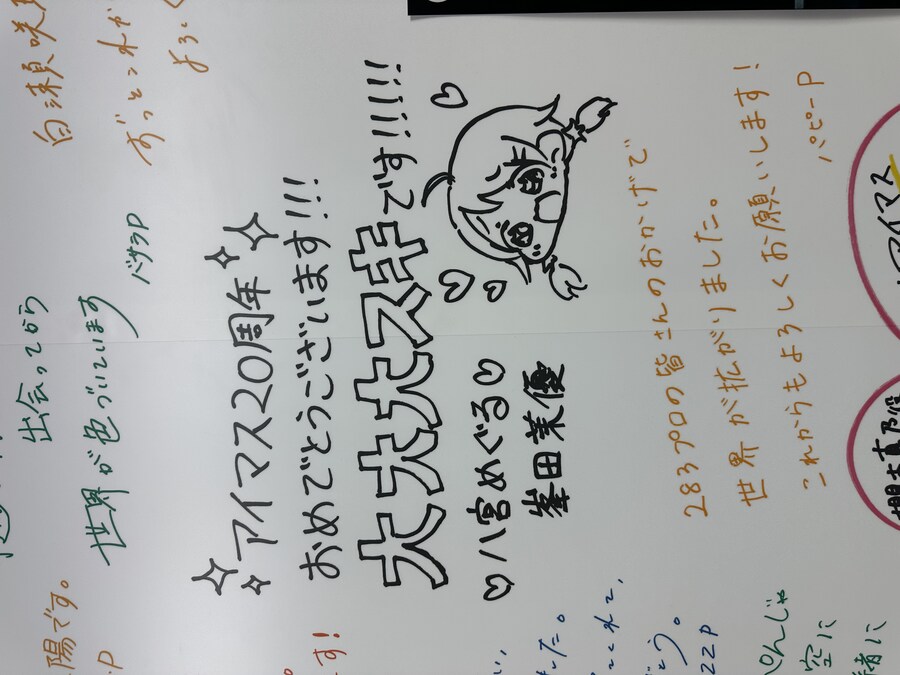 アイマス20周年
おめでとうございます!!!
大大大スキです!!!!!!
♡八宮めぐる♡
峯田茉優
283プロの皆さんのおかげで
世界が拡がりました。
これからもよろしくお願いします!
パピーP
出会ってから
世界が色づいています
バサラP
白瀬咲
ずっとこれか
よろしく
陽です。
P
す!
した。
22P
ぺんじゃ
空に
緒に
アイマス
櫻木真乃役